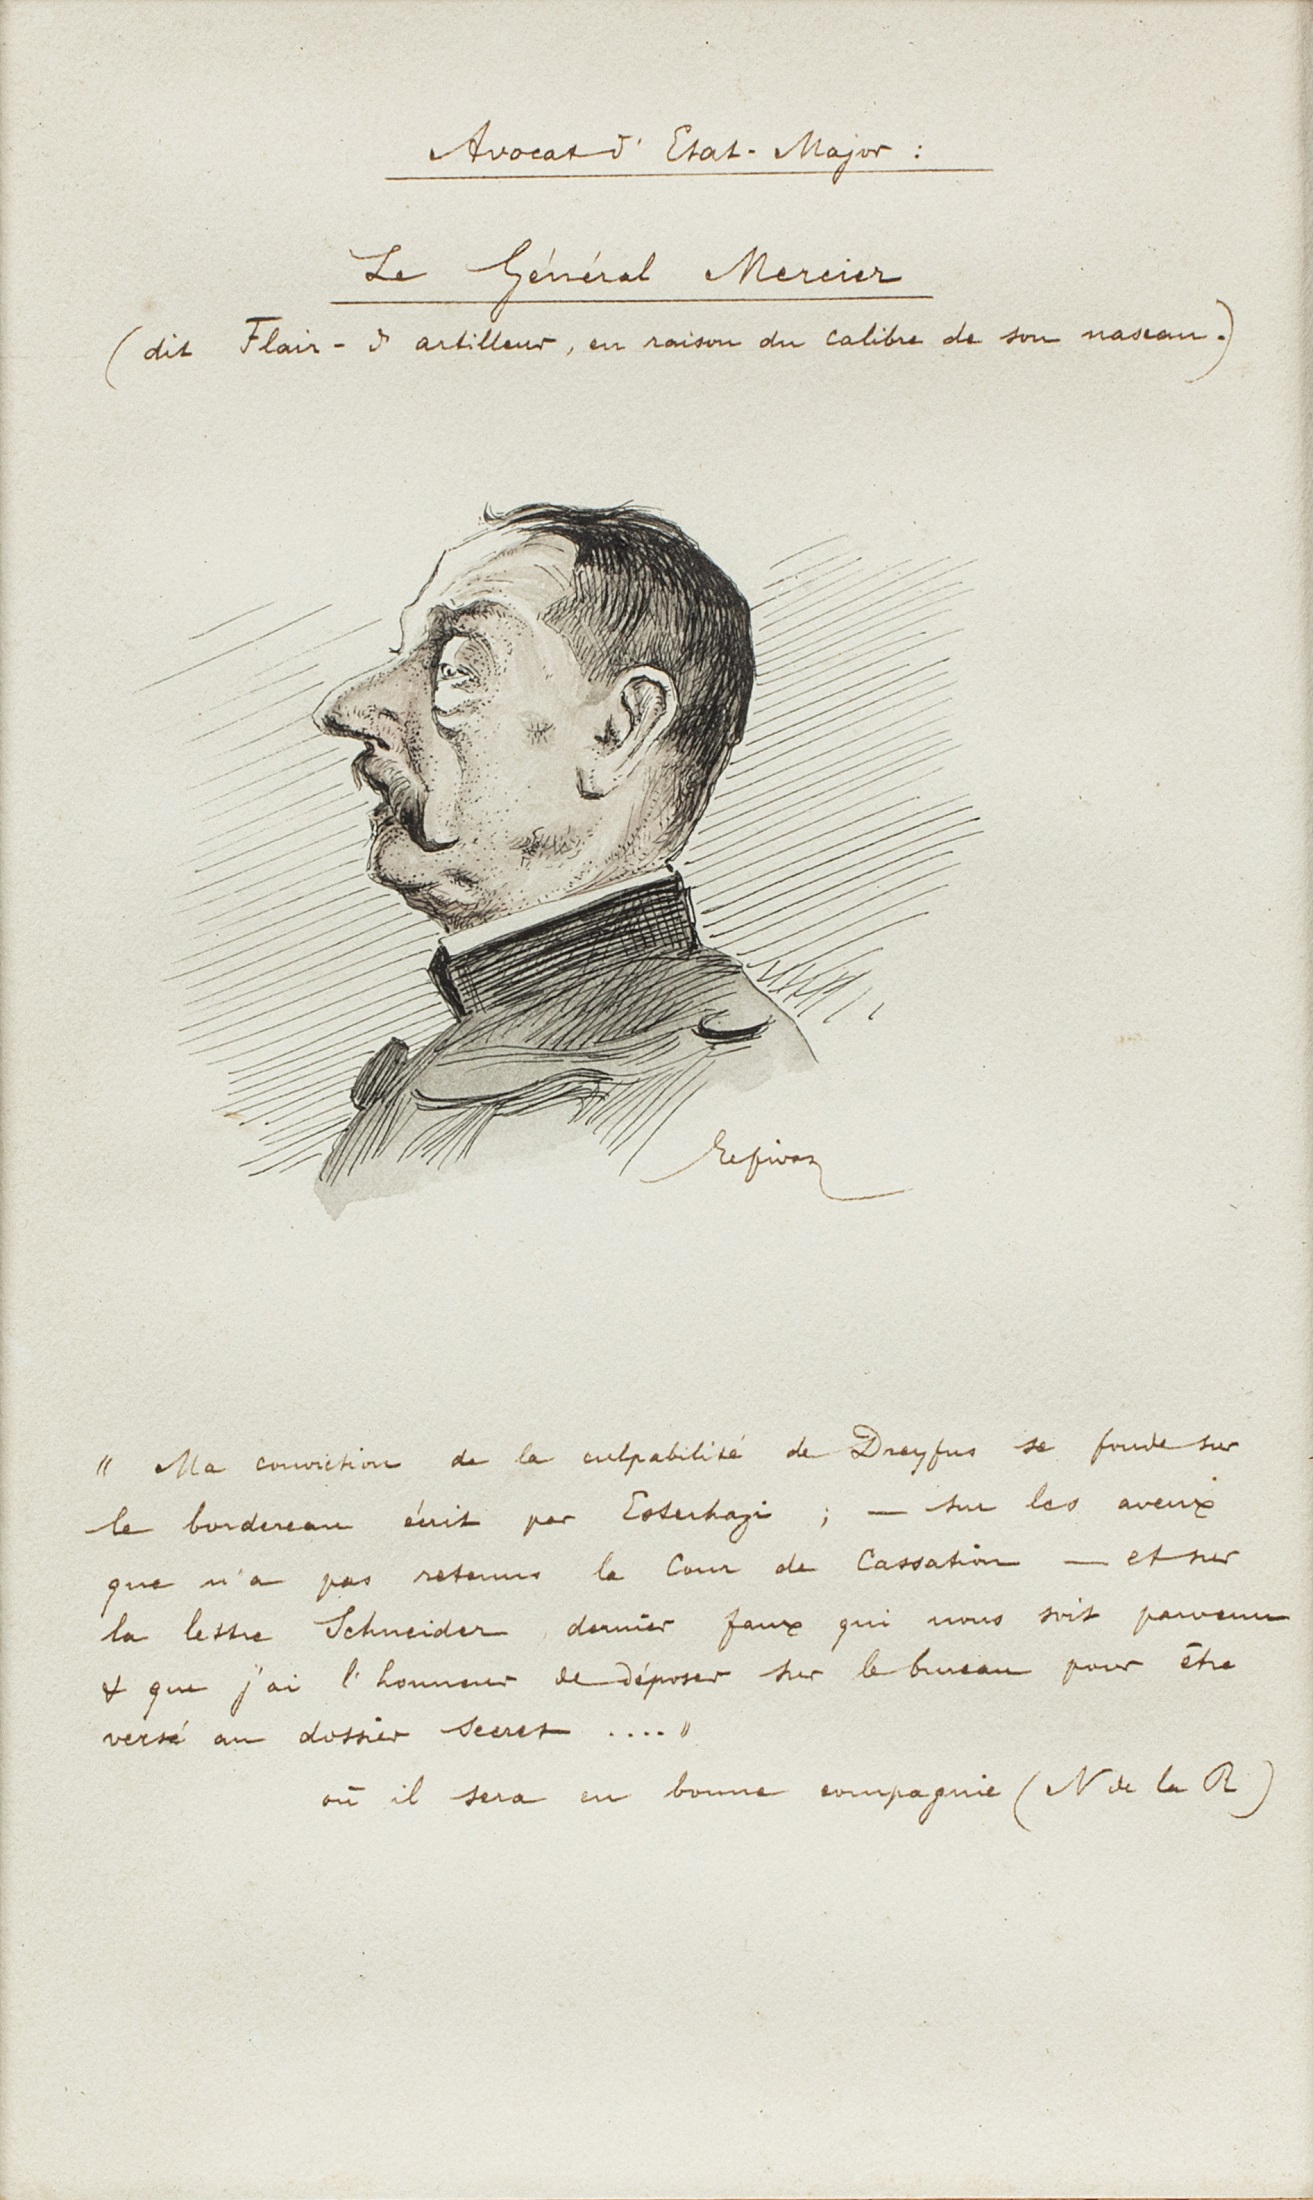 Avocat d'Etat-Major :
Le Général Mercier
(dit Flair-d'artilleur, en raison du calibre de son naseau.)
" Ma conviction de la culpabilité de Dreyfus se fonde sur
le bordereau écrit par Esterhazi ; — sur les aveux
que n'a pas retenus la Cour de Cassation — et sur
la lettre Schneider, dernier faux qui nous soit parvenu
& que j'ai l'honneur de déposer sur le bureau pour être
versé au dossier secret .... "
où il sera en bonne compagnie (N de la R)